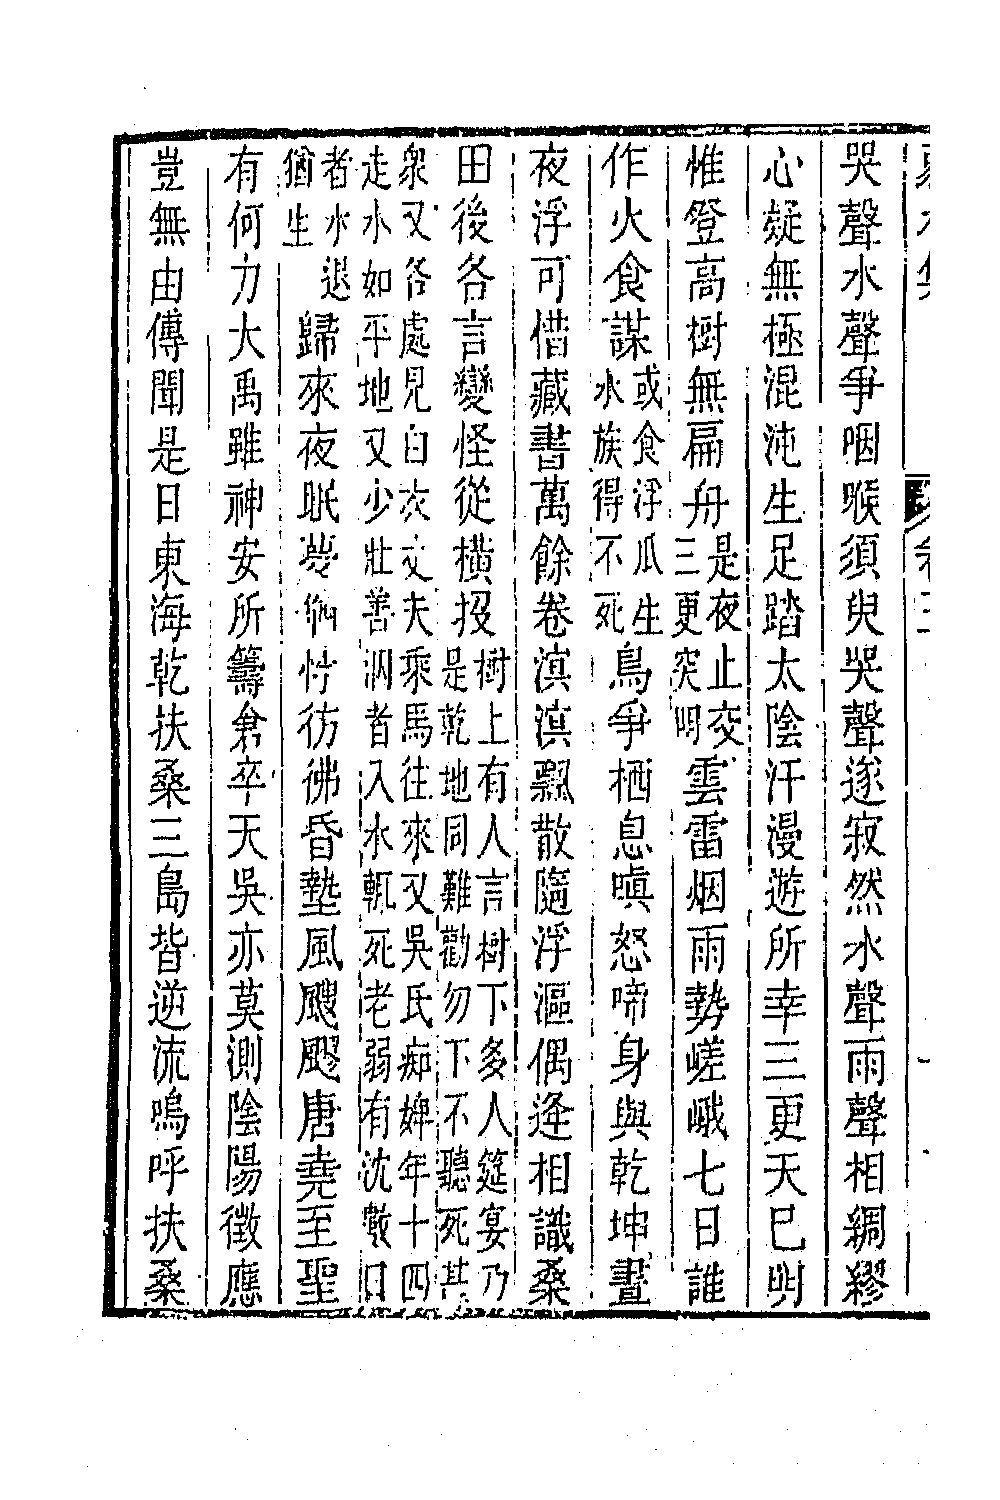 哭聲水聲爭咽喉須臾哭聲遂寂然水聲雨聲相綢繆
心疑無極混沌生足踏太陰汗漫遊所幸三更天已明
惟登高樹無扁舟是夜止交三更突明雲雷烟雨勢嵯峨七日誰
作火食謀或食浮瓜生水族得不死鳥爭栖息嗔怒啼身與乾坤晝
夜浮可惜藏書萬餘卷滇滇飄散隨浮漚偶逄相識桑
田後各言變怪從橫投樹上有人言樹下多人筵宴乃是乾地同難勸勿下不聽死其
衆又各處見白衣丈夫乘馬往來又吳氏痴婢年十四
走水如平地又少壯善泅者入水輒死老弱有沈數日
者水退猶生歸來夜眠夢彷彿昏墊風颼飂唐堯至聖
有何力大禹雖神安所籌倉卒天吳亦莫測陰陽徵應
豈無由傳聞是日東海乾扶桑三島皆逆流嗚呼扶桑